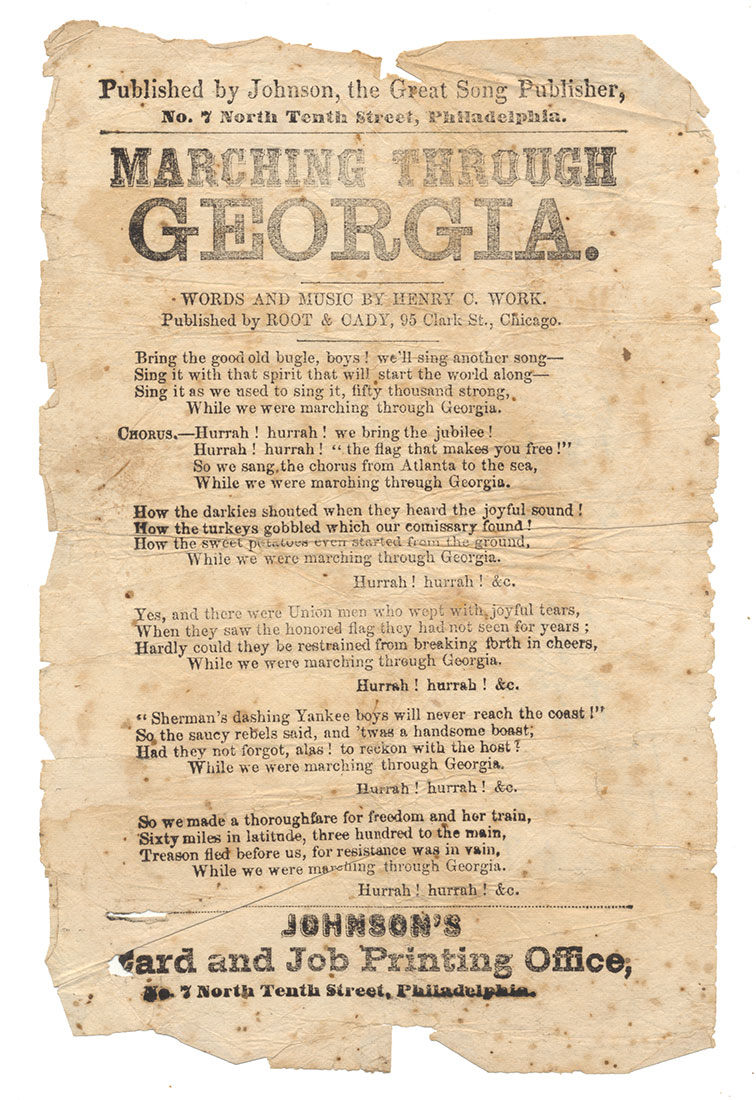 Published by Johnson, the Great Song Publisher,
No. 7 North Tenth Street, Philadelphia.
MARCHING THROUGH
GEORGIA.
WORDS AND MUSIC BY HENRY C. WORK.
Published by ROOT & CADY, 95 Clark St., Chicago.
Bring the good old bugle, boys ! we'll sing another song—
Sing it with that spirit that will start the world along—
Sing it as we used to sing it, fifty thousand strong,
While we were marching through Georgia.
CHORUS.—Hurrah ! hurrah ! we bring the jubilee !
Hurrah ! hurrah ! “ the flag that makes you free !”
So we sang the chorus from Atlanta to the sea,
While we were marching through Georgia.
How the darkies shouted when they heard the joyful sound !
How the turkeys gobbled which our comissary found !
How the sweet potatoes even started from the ground,
While we were marching through Georgia.
Hurrah ! hurrah ! &c.
Yes, and there were Union men who wept with joyful tears,
When they saw the honored flag they had not seen for years ;
Hardly could they be restrained from breaking forth in cheers,
While we were marching through Georgia.
Hurrah ! hurrah ! &c.
“ Sherman's dashing Yankee boys will never reach the coast !”
So the saucy rebels said, and 'twas a handsome boast;
Had they not forgot, alas ! to reckon with the host ?
While we were marching through Georgia.
Hurrah ! hurrah ! &c.
So we made a thoroughfare for freedom and her train,
Sixty miles in latitude, three hundred to the main,
Treason fled before us, for resistance was in vain,
While we were marching through Georgia.
Hurrah ! hurrah ! &c.
JOHNSON'S
Card and Job Printing Office,
No. 7 North Tenth Street, Philadelphia.